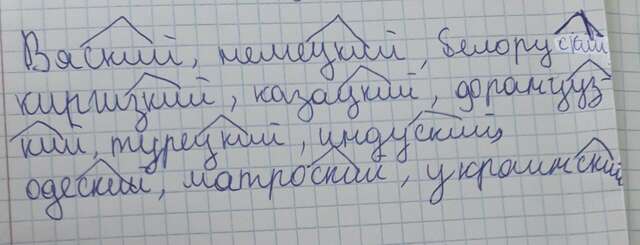 Вяский, немецкий, белоруский
киргизкий, казацкий, француз-
кий, турецкий, индуский,
одеский, матроский, украинский